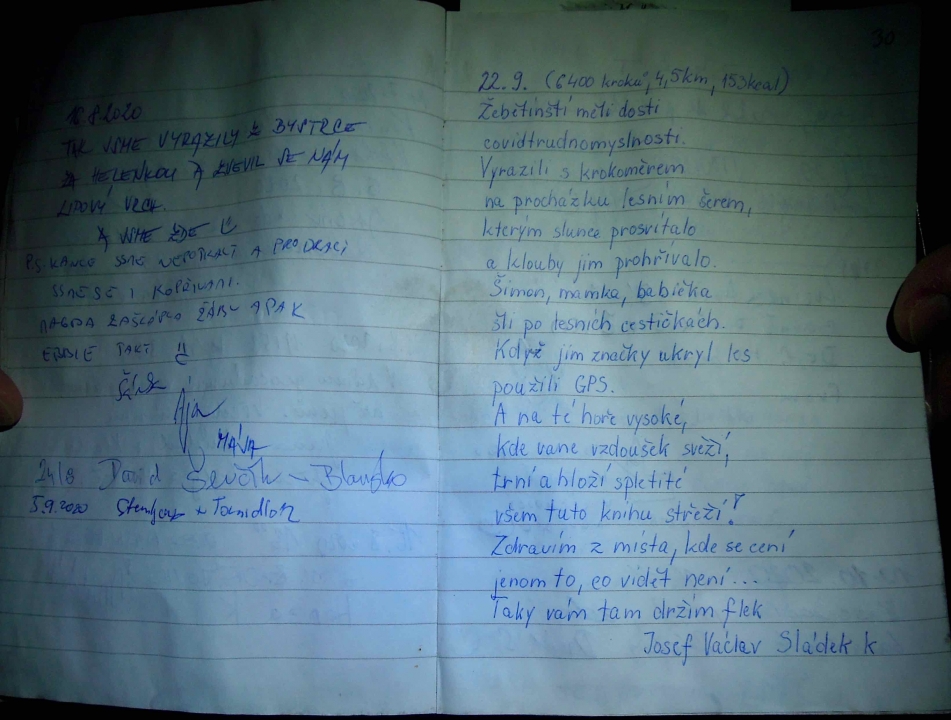 18.8.2020
TAK JSME VYRAZILY Z BYSTRCE
HELENKOU A ZJEVIL SE NÁM
LIPOVÝ VRCH.
A JSME ZDE
P.S. KANCE JSME NEPOTKALI A PRODRALI
JSME SE I KOPŘIVAMI.
MAGDA ZAŠLÁPLA ŽÁBU A PAK
Ája
MÁJA
24/8 David Ševčík - Blansko
5.9.2020
30
22.9. (6400 kroků, 4,5km, 153kcal)
Žebětínští měli dosti
covidtrudnomyslnosti.
Vyrazili s krokoměrem
na procházku lesním šerem,
kterým slunce prosvítalo
a klouby jim prohřívalo.
Šimon, mamka, babička
šli po lesních cestičkách.
Když jim značky ukryl les
použili GPS.
A na té hoře vysoké,
kde vane vzdoušek svěží,
trní a hloží spletité
všem tuto knihu střeží!
Zdravím z místa, kde se cení
jenom to, co vidět není...
Taky vám tam držím flek
Josef Václav Sládek k